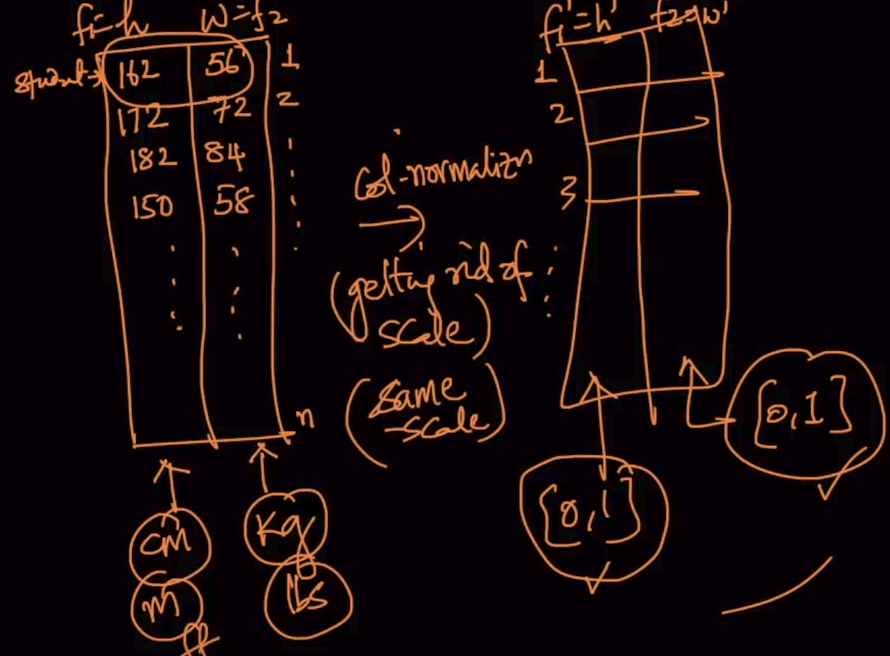 f1=h w=f2
student→ 162 56 1
172 72 2
182 84
150 58
n
cm kg
m lbs
ft
col-normalizn
(getting rid of
scale)
(same
scale)
f1'=h' f2'=w'
1
2
3
[0,1]
[0,1]